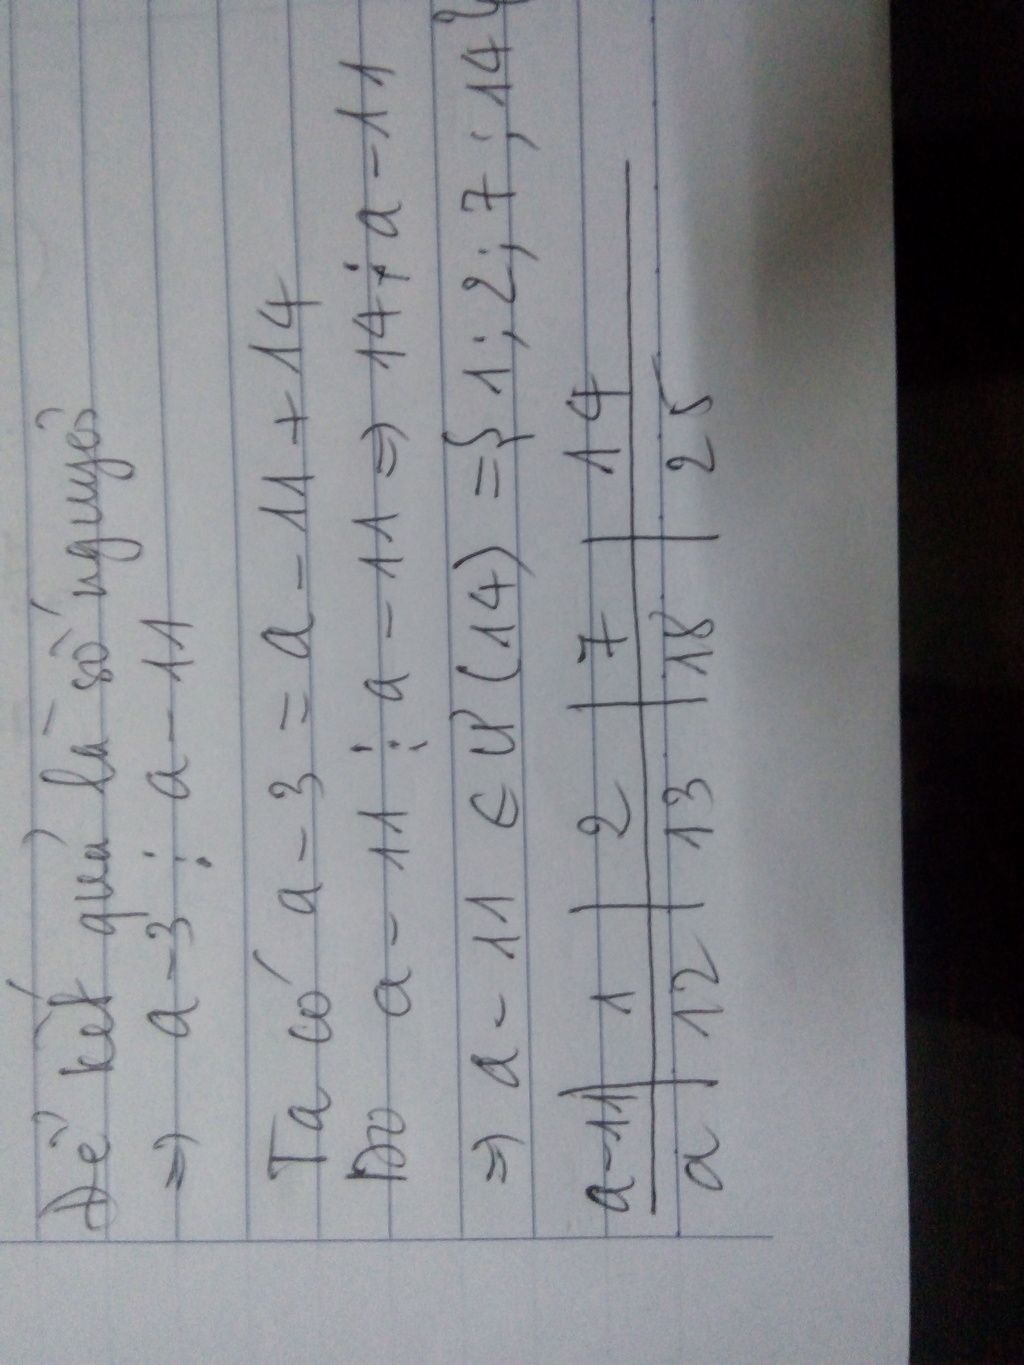 Để kết quả là số nguyên
=> a - 3 ⋮ a - 11
Ta có a - 3 = a - 11 + 14
Do a - 11 ⋮ a - 11 => 14 ⋮ a - 11
=> a - 11 ∈ Ư(14) = {1; 2; 7; 14}
a-11 | 1 | 2 | 7 | 14
a | 12 | 13 | 18 | 25